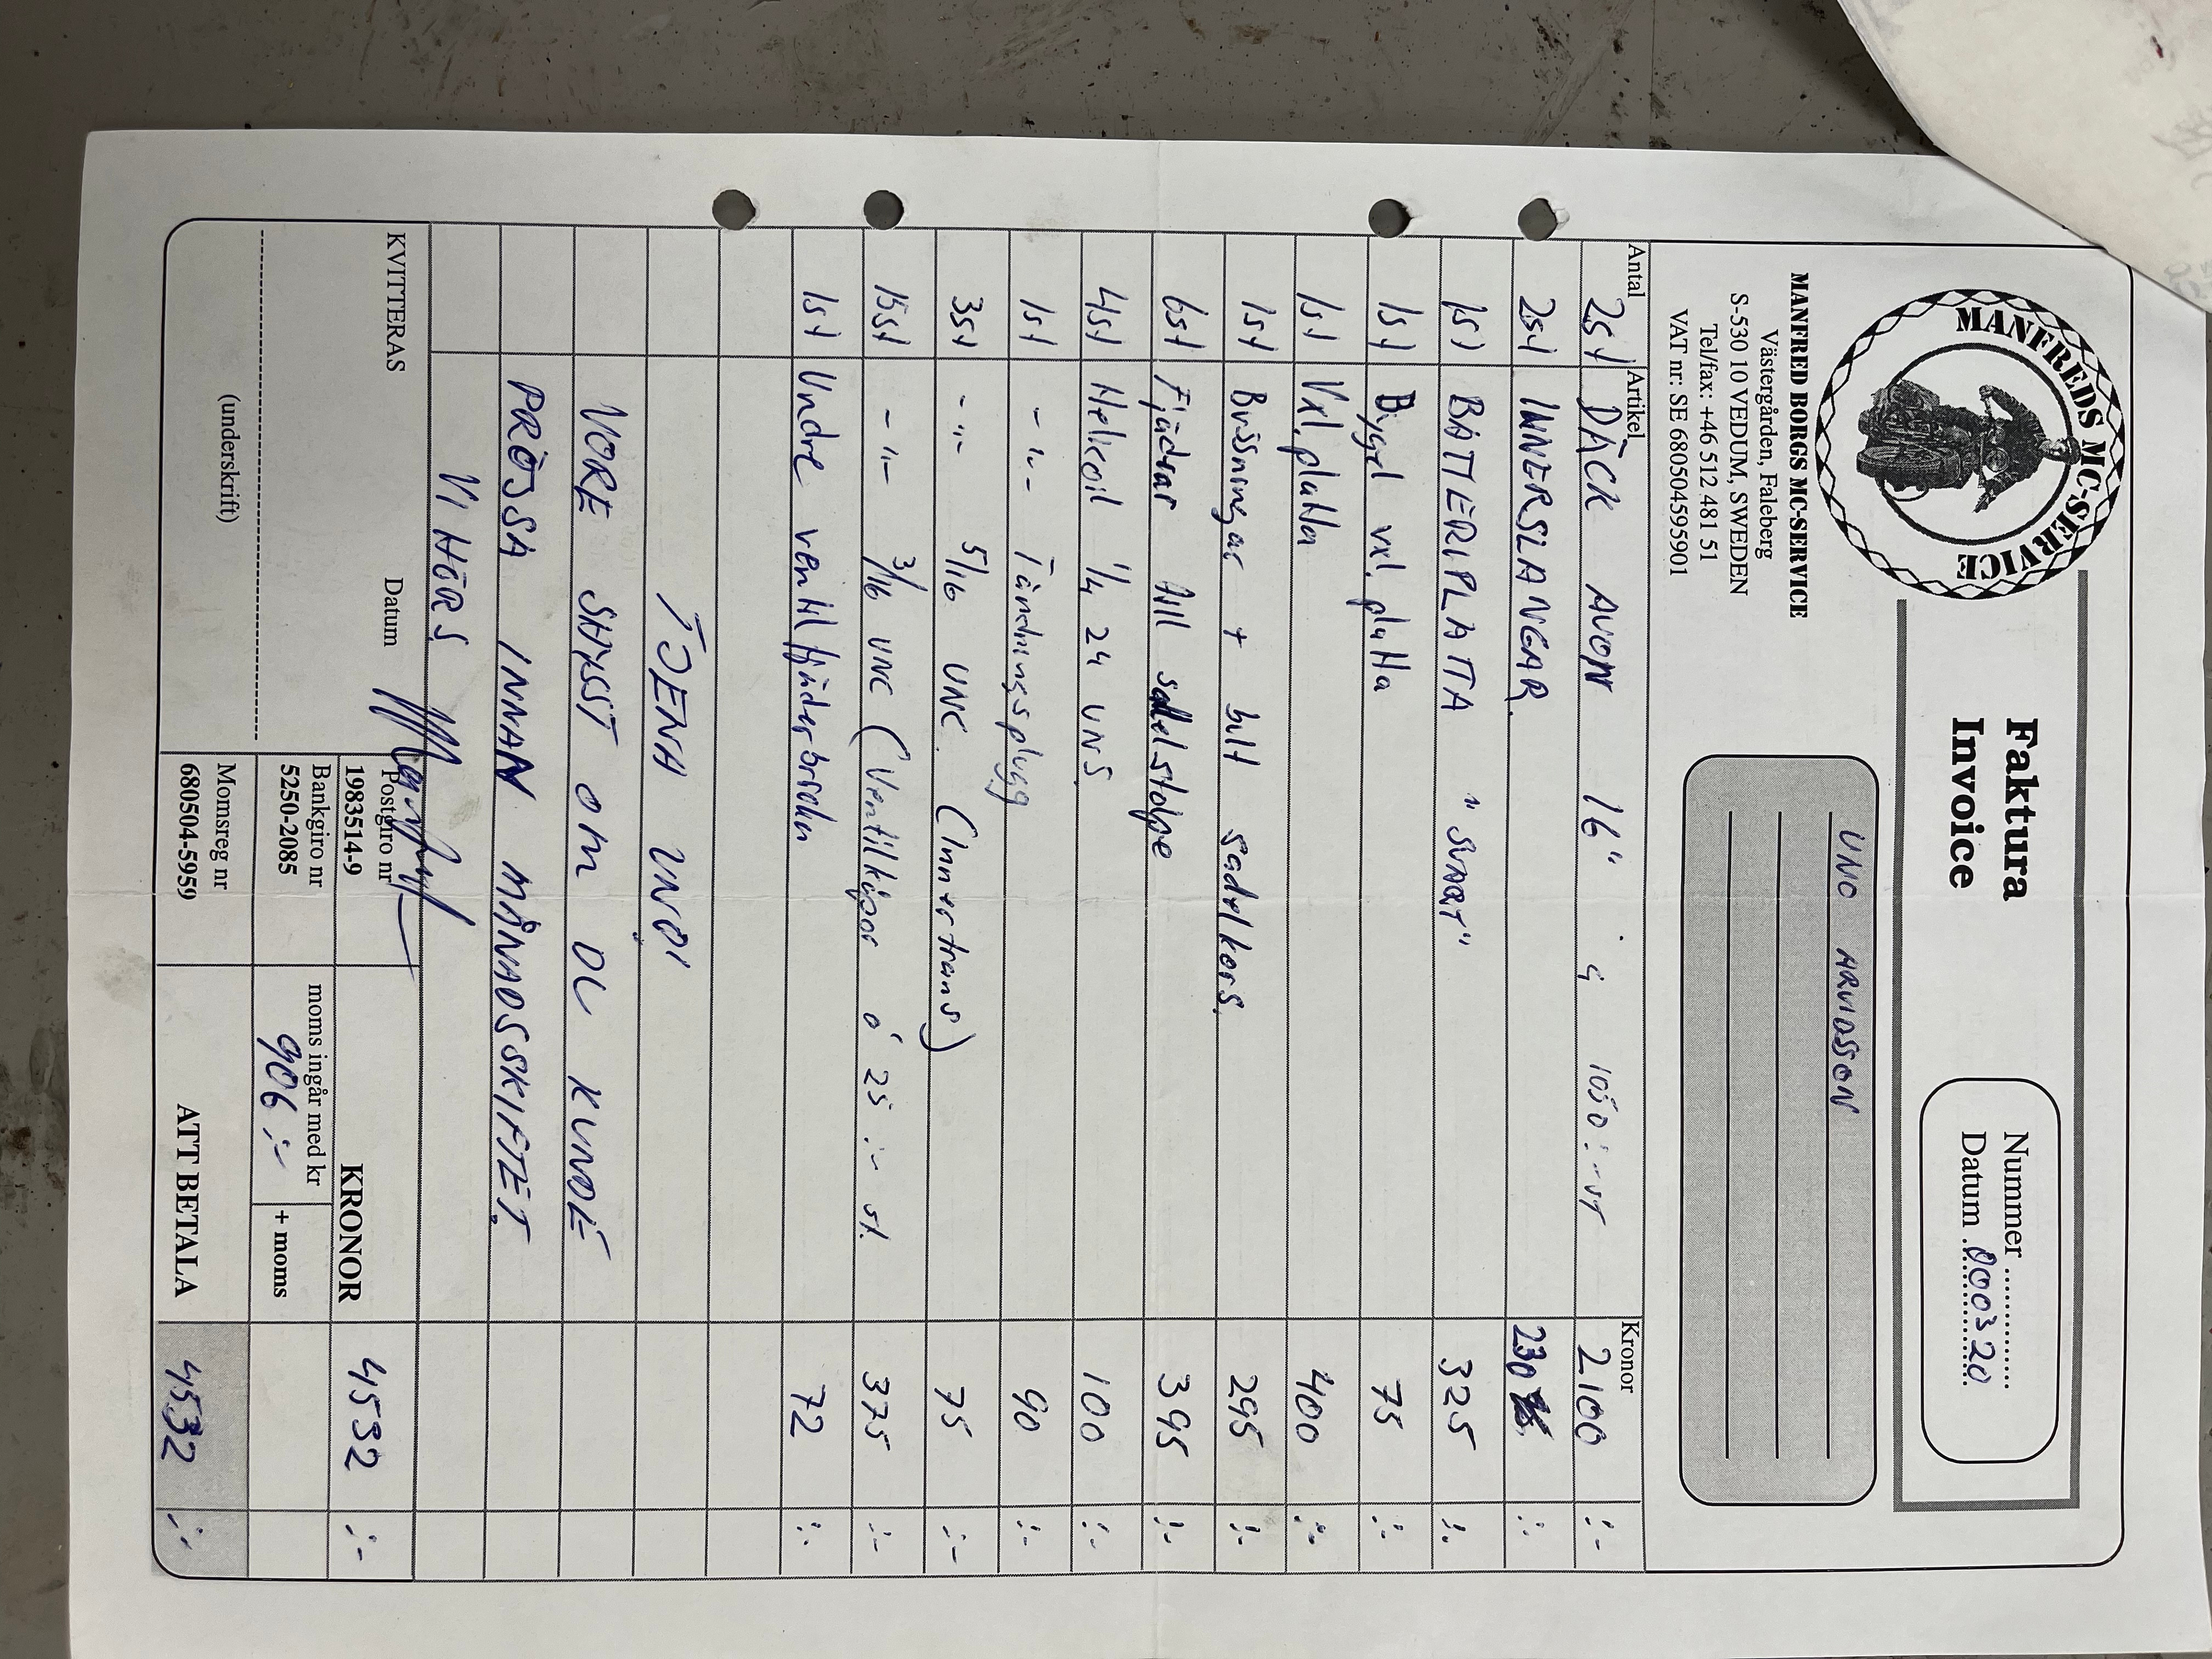 MANFREDS MC-SERVICE
MANFRED BORGS MC-SERVICE
Västergården, Faleberg
S-530 10 VEDUM, SWEDEN
Tel/fax: +46 512 481 51
VAT nr: SE 680504595901
Faktura
Invoice
Nummer
Datum 000320
UNO ARVIDSSON
Antal Artikel Kronor
2st DÄCK AVON 16" á 1050:-ST 2100 :-
2st INNERSLANGAR. 230 :-
1st BATTERIPLATTA "SVART" 325 :-
1st Bygel vxl. platta 75 :-
1st Vxl. platta 400 :-
1st Bussningar + bult sadelkors. 295 :-
6st Fjädrar till sadelstolpe 395 :-
4st Helicoil 1/4 24 UNS 100 :-
1st -"- Tändningsplugg 90 :-
3st -"- 5/16 UNC. (Innertrans) 75 :-
15st -"- 3/16 UNC (Ventilkåpor á 25:- st. 375 :-
1st Undre ventilfjäderbricka 72 :-
TJENA UNO!
VORE SHYSST OM DU KUNDE
PRÖJSA INNAN MÅNADSSKIFTET.
VI HÖRS
KVITTERAS
Datum
(underskrift)
Postgiro nr
1983514-9
Bankgiro nr
5250-2085
Momsreg nr
680504-5959
KRONOR 4532 :-
moms ingår med kr
906 :-
+ moms
ATT BETALA 4532 :-